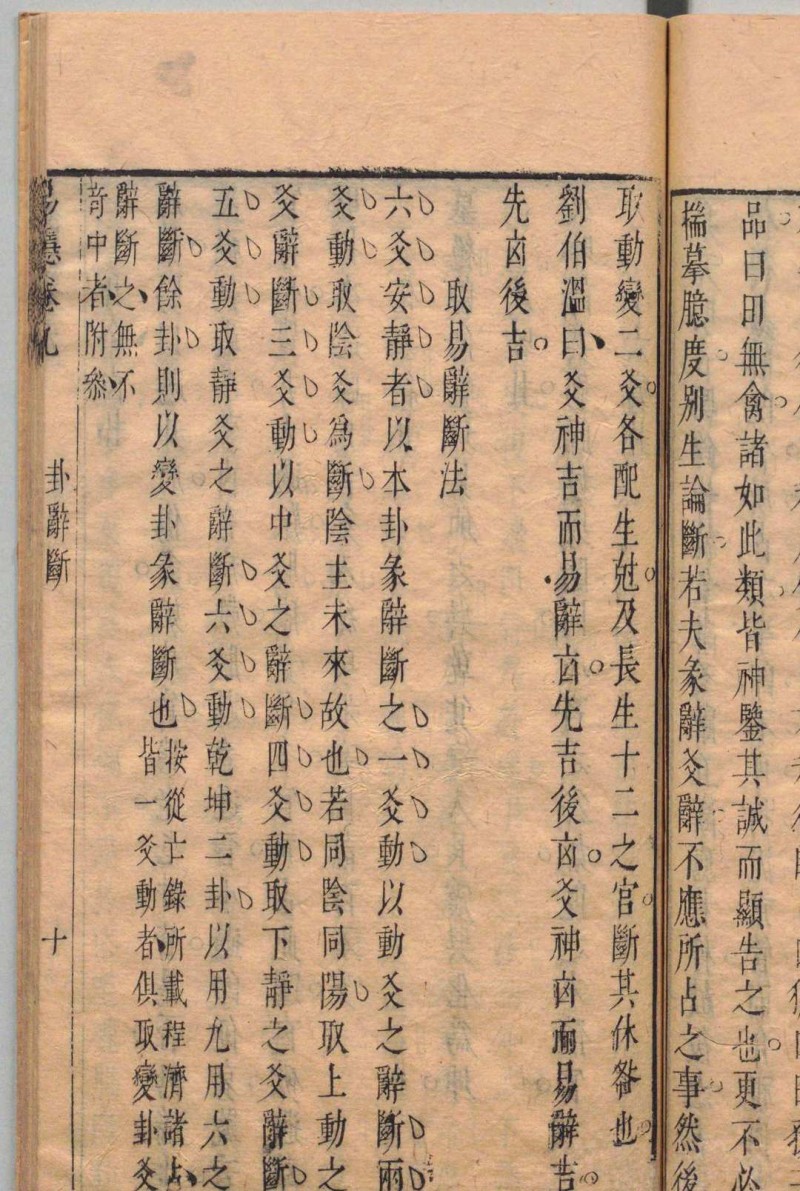 品曰田無禽諸如此類皆神鑒其誠而顯告之也更不必
揣摹臆度别生論斷若夫彖辭爻辭不應所占之事然後
取動變二爻各配生尅及長生十二之官斷其休咎也
劉伯溫曰爻神吉而易辭凶先吉後凶爻神凶而易辭吉
先凶後吉
取易辭斷法
六爻安靜者以本卦彖辭斷之一爻動以動爻之辭斷兩
爻動取陰爻爲斷陰主未來故也若同陰同陽取上動之
爻辭斷三爻動以中爻之辭斷四爻動取下靜之爻辭斷
五爻動取靜爻之辭斷六爻動乾坤二卦以用九用六之
辭斷餘卦則以變卦彖辭斷也按從亡錄所載程濟諸占
皆一爻動者俱取變卦爻
辭斷之無不
竒中者附叅
易隱卷九
卦辭斷
十